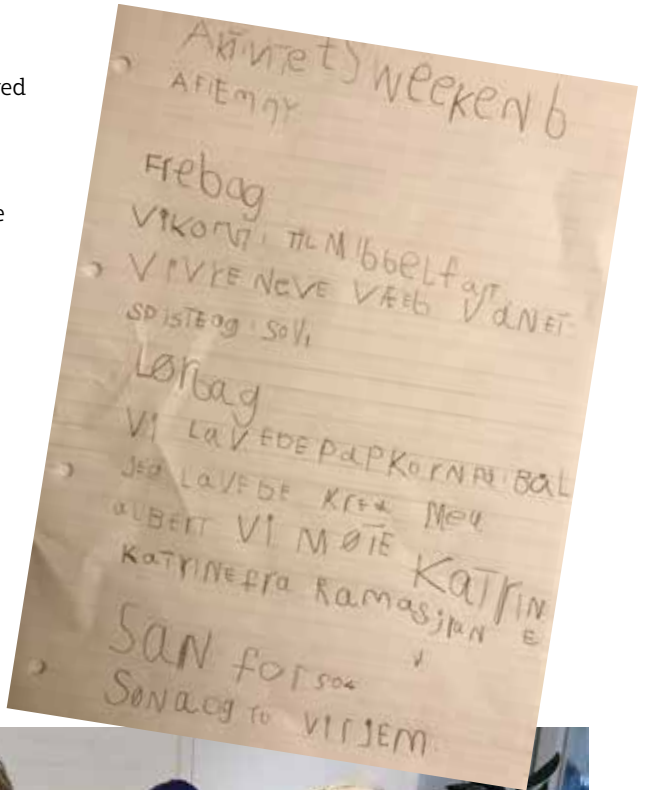 ved
e
AKtiVitetS WeeKeN b
AF EMMY
Frebag
ViKOM TiL MibbeLfart
ViVre Neve Væeb VaNet
SPiSTE og SoV i
Lørbag
Vi LaVEDE PaPKorN På BåL
JEG LaVEDE Krea Meb
aLBErT Vi MØTE KaTriN
KaTriNE fra Ramasjan E
SaN for
SøNaog TO Vi JEM